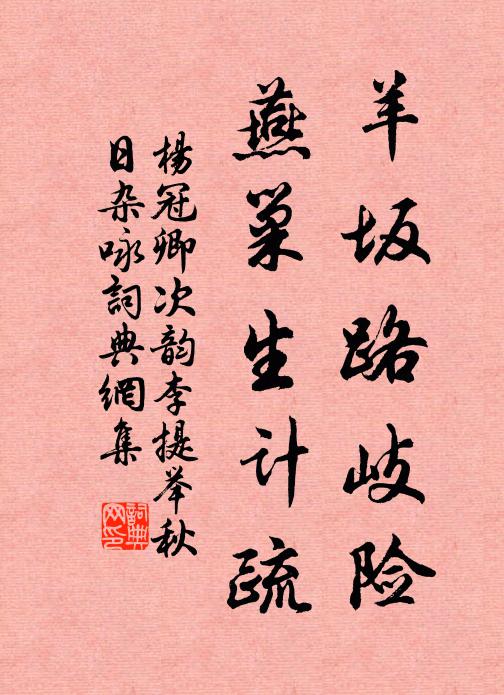 羊坂路歧险
燕巢生计疏
楊冠卿次韵李提举秋
日杂咏詞典網集
詞典網印